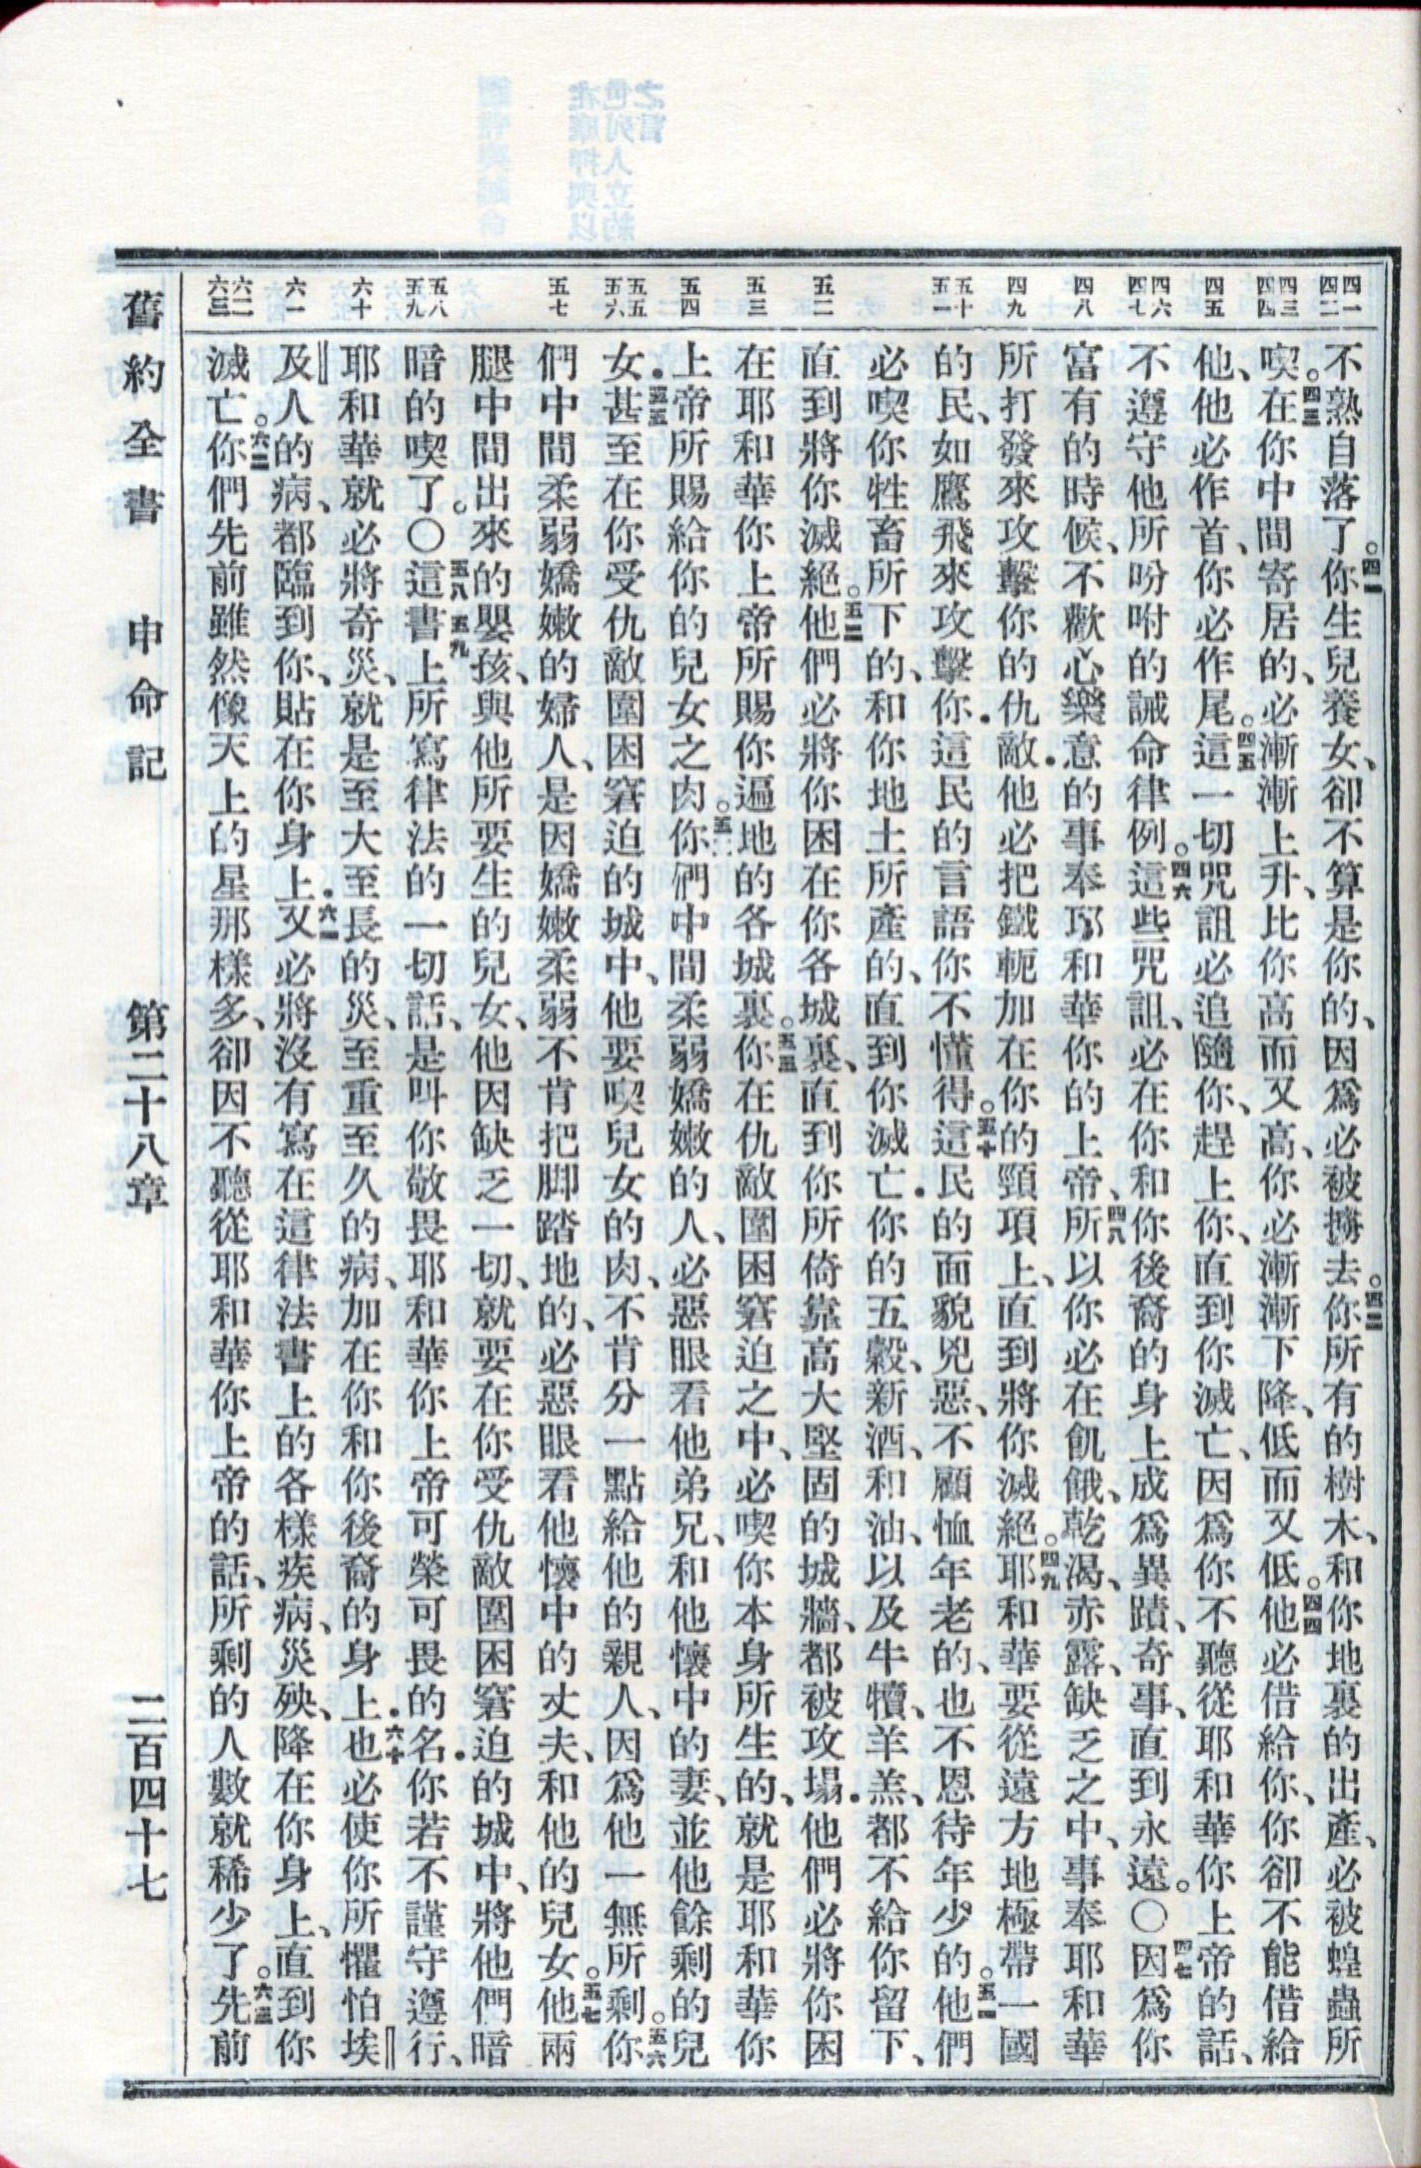 四一 四二
不熟自落了。四一你生兒養女、卻不算是你的、因爲必被擄去。四二你所有的樹木、和你地裏的出產、必被蝗蟲所
四三 四四
喫。四三在你中間寄居的、必漸漸上升、比你高而又高、你必漸漸下降、低而又低。四四他必借給你、你卻不能借給
四五
他、他必作首、你必作尾。四五這一切咒詛必追隨你、趕上你、直到你滅亡、因爲你不聽從耶和華你上帝的話、
四六 四七
不遵守他所吩咐的誡命律例。四六這些咒詛、必在你和你後裔的身上成爲異蹟、奇事、直到永遠。〇四七因爲你
四八
富有的時候、不歡心樂意的事奉耶和華你的上帝、四八所以你必在飢餓、乾渴、赤露、缺乏之中、事奉耶和華
四九
所打發來攻擊你的仇敵．他必把鐵軛加在你的頸項上、直到將你滅絕。四九耶和華要從遠方地極帶一國
五十 五一
的民、如鷹飛來攻擊你．這民的言語你不懂得。五十這民的面貌兇惡、不顧恤年老的、也不恩待年少的。五一他們
必喫你牲畜所下的、和你地土所產的、直到你滅亡．你的五穀、新酒、和油、以及牛犢、羊羔、都不給你留下、
五二
直到將你滅絕。五二他們必將你困在你各城裏、直到你所倚靠高大堅固的城牆、都被攻塌．他們必將你困
五三
在耶和華你上帝所賜你遍地的各城裏。五三你在仇敵圍困窘迫之中、必喫你本身所生的、就是耶和華你
五四
上帝所賜給你的兒女之肉。你們中間柔弱嬌嫩的人、必惡眼看他弟兄、和他懷中的妻、並他餘剩的兒
五五 五六
女．五五甚至在你受仇敵圍困窘迫的城中、他要喫兒女的肉、不肯分一點給他的親人、因爲他一無所剩。五六你
五七
們中間柔弱嬌嫩的婦人、是因嬌嫩柔弱不肯把脚踏地的、必惡眼看他懷中的丈夫、和他的兒女。五七他兩
腿中間出來的嬰孩、與他所要生的兒女、他因缺乏一切、就要在你受仇敵圍困窘迫的城中、將他們暗
五八 五九
暗的喫了。〇五八這書上所寫律法的一切話、是叫你敬畏耶和華你上帝可榮可畏的名．你若不謹守遵行、
六十
五九耶和華就必將奇災、就是至大至長的災、至重至久的病、加在你和你後裔的身上．六十也必使你所懼怕埃
六一
及人的病、都臨到你、貼在你身上．六一又必將沒有寫在這律法書上的各樣疾病、災殃、降在你身上、直到你
六二 六三
滅亡。六二你們先前雖然像天上的星那樣多、卻因不聽從耶和華你上帝的話、所剩的人數就稀少了。六三先前
舊約全書 申命記 第二十八章 二百四十七